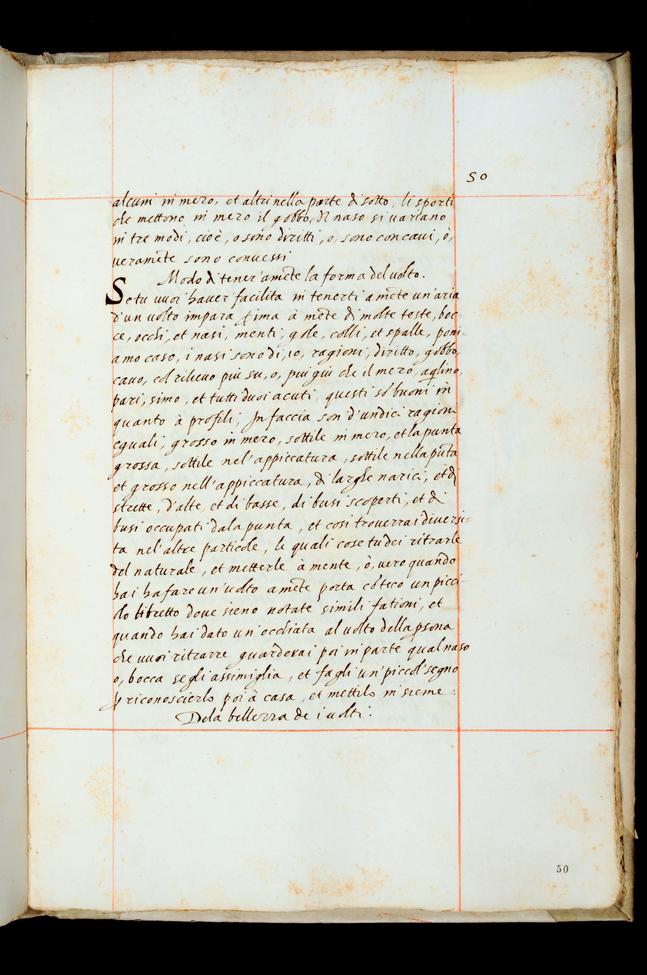 50
alcuni in mezo, et altri nella parte di sotto, li sporti
che mettono in mezo il gobbo, del naso si uariano
in tre modi, cioè, o sono diritti, o, sono concaui, ò,
ueramēte sono conuessi
Modo di tener' amēte la forma del uolto.
Se tu uuoi hauer facilita in tenerti a mēte un'aria
d'un uolto impara prima à mēte di molte teste, boc-
ce, occhi, et nasi, menti, gole, colli, et spalle, poni-
amo caso, i nasi sono di, 10, ragioni, diritto, gobbo,
cauo, col rilieuo più su, o, più giù che il mezo, aqlino,
pari, simo, et tutti duoi acuti, questi sō buoni in
quanto à profili, In faccia son d'undici ragion
eguali, grosso in mezo, sottile in mezo, et la punta
grossa, sottile nel'appiccatura, sottile nella pūta
et grosso nell'appiccatura, di larghe narici, et di
strette, d'alte, et di basse, di busi scoperti, et di
busi occupati dala punta, et cosi trouerrai diuersi-
ta nel'altre particole, le quali cose tu dei ritrarle
del naturale, et metterle à mente, ò, uero quando
hai ha fare un'uolto a mēte porta cōteco un picci
olo libretto doue sieno notate simili fationi, et
quando hai dato un'occhiata al uolto della psona
che uuoi ritrarre guarderai poi in parte qual naso
o, bocca se gli assimiglia, et fagli un'piccol'segno
p riconoscierlo poi à casa, et mettilo insieme.
Dela bellezza de i uolti.
50